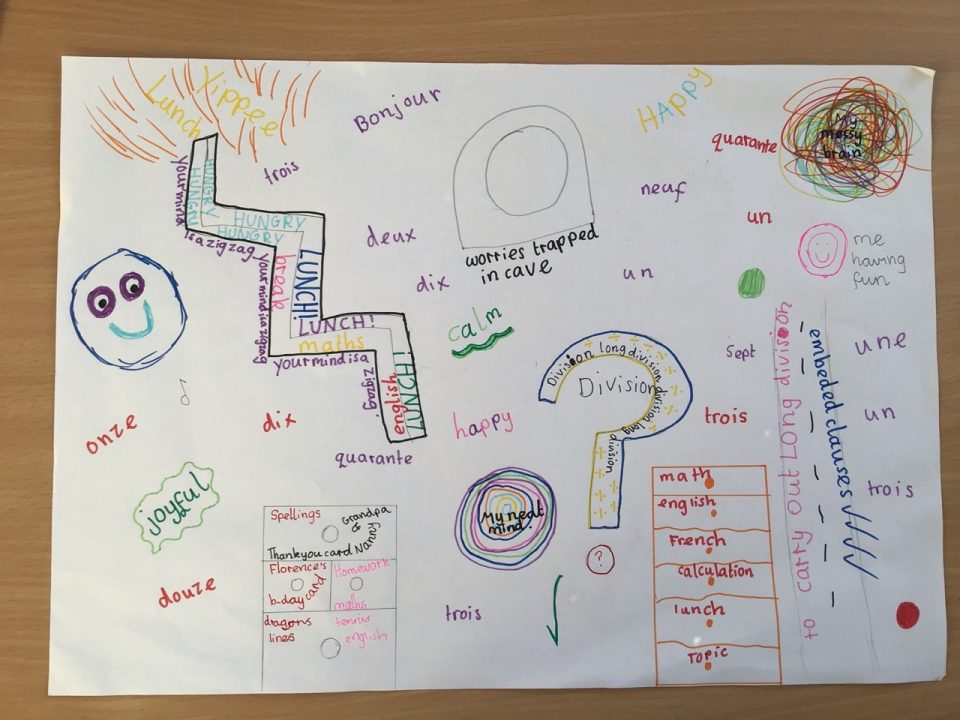 Lunch
Yippee
Bonjour
HAPPY
My
messy
brain
quarante
trois
neuf
un
me
having
fun
your mind
HUNGRY
HUNGRY
HUNGRY
HUNGRY
is a zigzag
your mind is a zigzag
break
LUNCH!
LUNCH!
maths
your mind is a
zigzag
english
LUNCH!
deux
worries trapped
in cave
dix
un
calm
Sept
une
Division long division division long
division
Division
to carry out Long division
embeded clauses
onze
dix
happy
trois
un
quarante
trois
joyful
My neat
mind!
math
english
French
calculation
lunch
Topic
Spellings
Grandpa
&
Nanny
Thankyou card
Florence's
b-day card
Homework
maths
dragons
lines
tennis
english
douze
trois
?